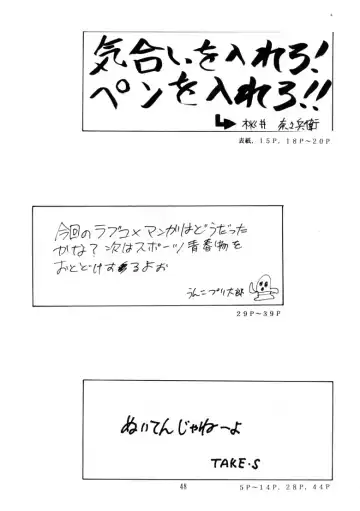 気合いを入れろ!
ペンを入れろ!!
桃井 奈々兵衛
表紙, 15P, 18P~20P
今回のラブコメマンガはどうだった
かな?次はスポーツ青春物を
おとどけするよお
うんこプリ太郎
29P~39P
ぬいてんじゃねーよ
TAKE・S
48
5P~14P, 28P, 44P